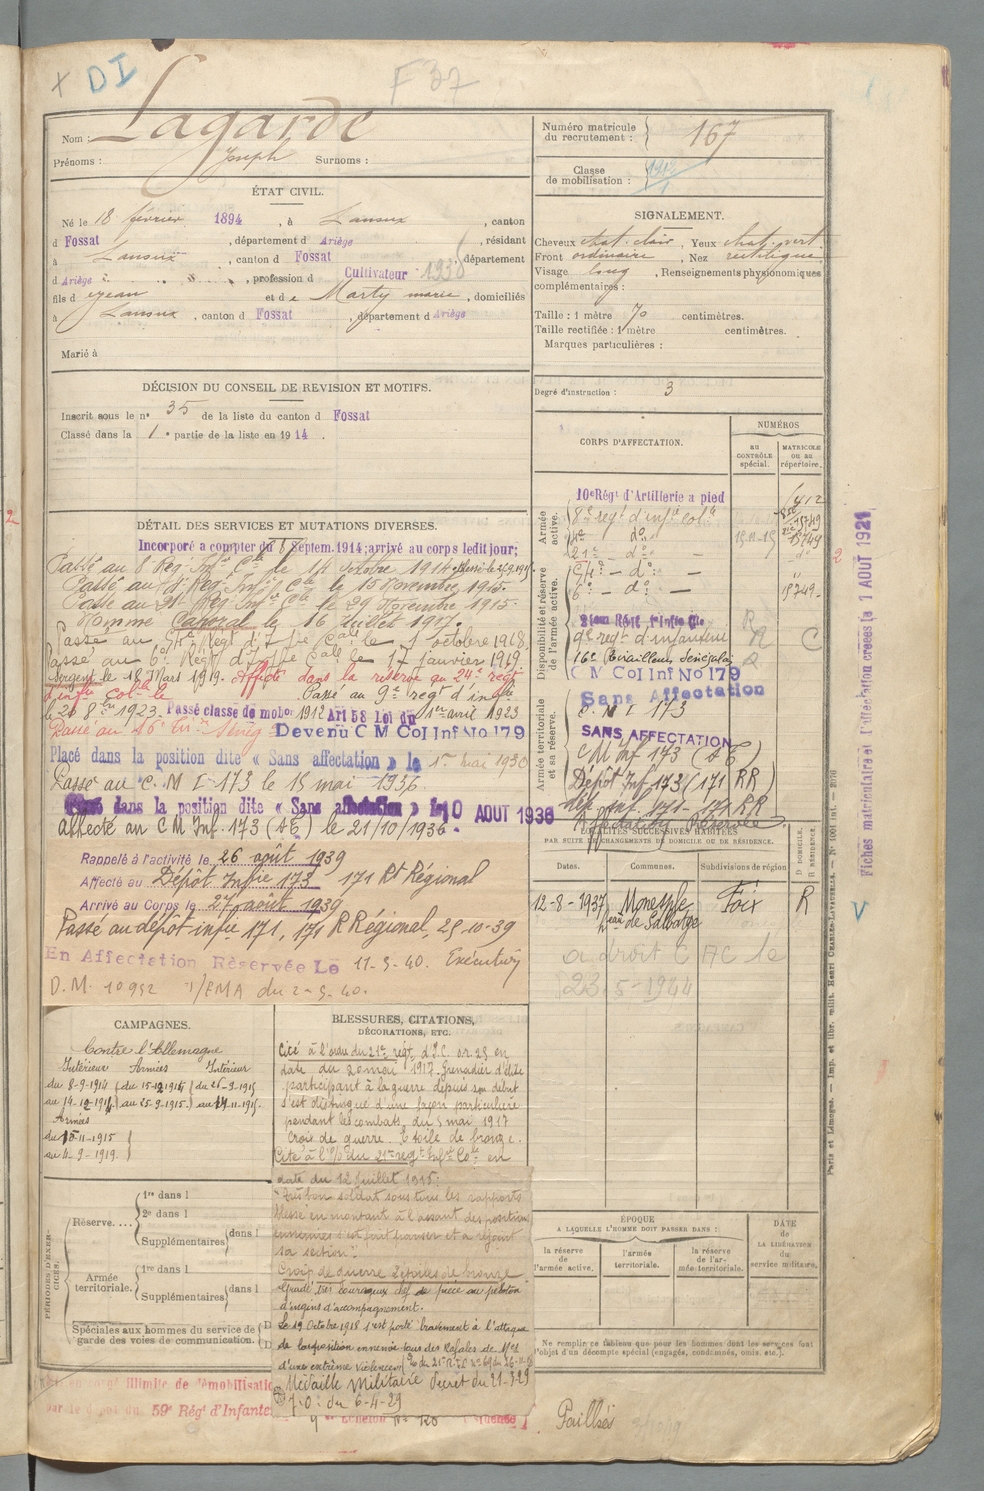 + DI
F 37
Nom : Lagarde
Prénoms : Joseph Surnoms :
ÉTAT CIVIL.
Né le 18 février 1894, à Lanoux, canton
d Fossat, département d Ariège, résidant
à Lanoux, canton d Fossat, département
d Ariège, profession d Cultivateur 1930
fils d et de Marty marie, domiciliés
à Lanoux, canton d Fossat, département d Ariège
Marié à
DÉCISION DU CONSEIL DE REVISION ET MOTIFS.
Inscrit sous le n° 35 de la liste du canton d Fossat
Classé dans la 1 e partie de la liste en 19 14.
DÉTAIL DES SERVICES ET MUTATIONS DIVERSES.
Incorporé a compter du 8 Septem. 1914; arrivé au corps ledit jour;
Passé au 8e Rég. Infie Cle le 14 octobre 1914
Passé au 4e Reg. Infie Cle le 15 Novembre 1915.
Passé au 21e Reg. Infie Cle le 29 Novembre 1915.
Nommé Caporal le 16 Juillet 1917.
Passé au Régt d'Infie Cale le 1 octobre 1918
Passé au 6e Régt d'Infie Cale le 17 janvier 1919
Sergent le 18 Mars 1919. Affecté dans la réserve au 24e regt
d'infie colle le Passé au 9e regt d'infie
le 26 8bre 1923. Passé classe de mobon 1912 Art 58 Loi du 1er avril 1923
Passé au 16e Devenu C M Col Inf No 179
Placé dans la position dite « Sans affectation » le 1er mai 1930
Passé au C. M I - 173 le 15 mai 1936
dans la position dite « Sans affectation » le 10 AOUT 1936
Affecté au C M Inf. 173 (AE) le 21/10/1936.
Rappelé à l'activité le 26 août 1939
Affecté au Dépôt Infie 173 171 Rt Régional
Arrivé au Corps le 27 août 1939
Passé au dépôt infie 171, 171 R Régional, 25-10-39
En Affectation Réservée Le 11-3-40. Exécution
D.M. 10952 1/EMA du 2-3-40.
CAMPAGNES.
Contre l'Allemagne
Intérieur Armées Intérieur
du 8-9-1914 du 15-12-1914 du 26-9-1915
au 14-12-1914 au 25-9-1915. au 14-11-1915.
Armées
du 15-11-1915
au 4-9-1919.
BLESSURES, CITATIONS,
DÉCORATIONS, ETC.
Cité à l'ordre du 21e régt d'I.C. nr. 25 en
date du 20 mai 1917. Grenadier d'élite
participant à la guerre depuis son début
s'est distingué d'une façon particulière
pendant les combats du 5 mai 1917
Croix de guerre. Etoile de bronze.
Cité à l'O/ du 21e regt Infie Cole en
date du 12 Juillet 1915:
Très bon soldat sous tous les rapports
blessé en montant à l'assaut des positions
ennemies s'est fait panser et a rejoint
sa section.
Croix de guerre 2 étoiles de bronze
Gradé très courageux chef de pièce au peloton
d'engins d'accompagnement.
Le 19 Octobre 1918 s'est porté bravement à l'attaque
de la position ennemie sous des Rafales de Mes
d'une extrême violence
Médaille Militaire Décret du 21-3-29
J.O. du 6-4-29
PÉRIODES D'EXERCICES.
Réserve.... 1re dans l
2e dans l
Supplémentaires dans l
Armée territoriale. 1re dans l
Supplémentaires dans l
Spéciales aux hommes du service de garde des voies de communication.
illimité de démobilisatio
par le dépôt du 59e Régt d'Infante
Echelon
Numéro matricule du recrutement : 167
Classe de mobilisation : 1912
SIGNALEMENT.
Cheveux chat. clair, Yeux chat. vert
Front ordinaire, Nez rectiligne
Visage long, Renseignements physionomiques
complémentaires :
Taille : 1 mètre 70 centimètres.
Taille rectifiée : 1 mètre centimètres.
Marques particulières :
Degré d'instruction : 3
CORPS D'AFFECTATION.
NUMÉROS
AU CONTRÔLE spécial.
MATRICULE OU AU répertoire.
Armée active.
10e Régt d'Artillerie a pied 1412
8e regt d'infie colle
4e do 15749
21e - do -
Disponibilité et réserve de l'armée active.
do -
6e - do - 15749
24em Régt d'Infie Cle
9e regt d'infanterie
16e Tirailleurs Sénégalais
C M Col Inf No 179
Armée territoriale et sa réserve.
Sans Affectation
C. M I 173
SANS AFFECTATION
C M Inf 173 (AE)
Dépôt Inf 173 (171 RR)
Dép. Inf. 171 - 171 RR
Affectation Réservée
LOCALITÉS SUCCESSIVES HABITÉES
PAR SUITE DE CHANGEMENTS DE DOMICILE OU DE RÉSIDENCE.
Dates. Communes. Subdivisions de région D. DOMICILE. R. RÉSIDENCE.
12-8-1937 Monesple Foix R
de Salbatge
a droit C AC le
23.5-1944
ÉPOQUE
A LAQUELLE L'HOMME DOIT PASSER DANS :
la réserve de l'armée active.
l'armée territoriale.
la réserve de l'armée territoriale.
DATE
DE
LA LIBÉRATION
du
service militaire.
Ne remplir ce tableau que pour les hommes dont les services font
l'objet d'un décompte spécial (engagés, condamnés, omis. etc.).
Pailhès
Fiches matriculaire et d'affectation créées le 1 AOUT 1921
Paris et Limoges. — Imp. et libr. milit. Henri CHARLES-LAVAUZELLE.